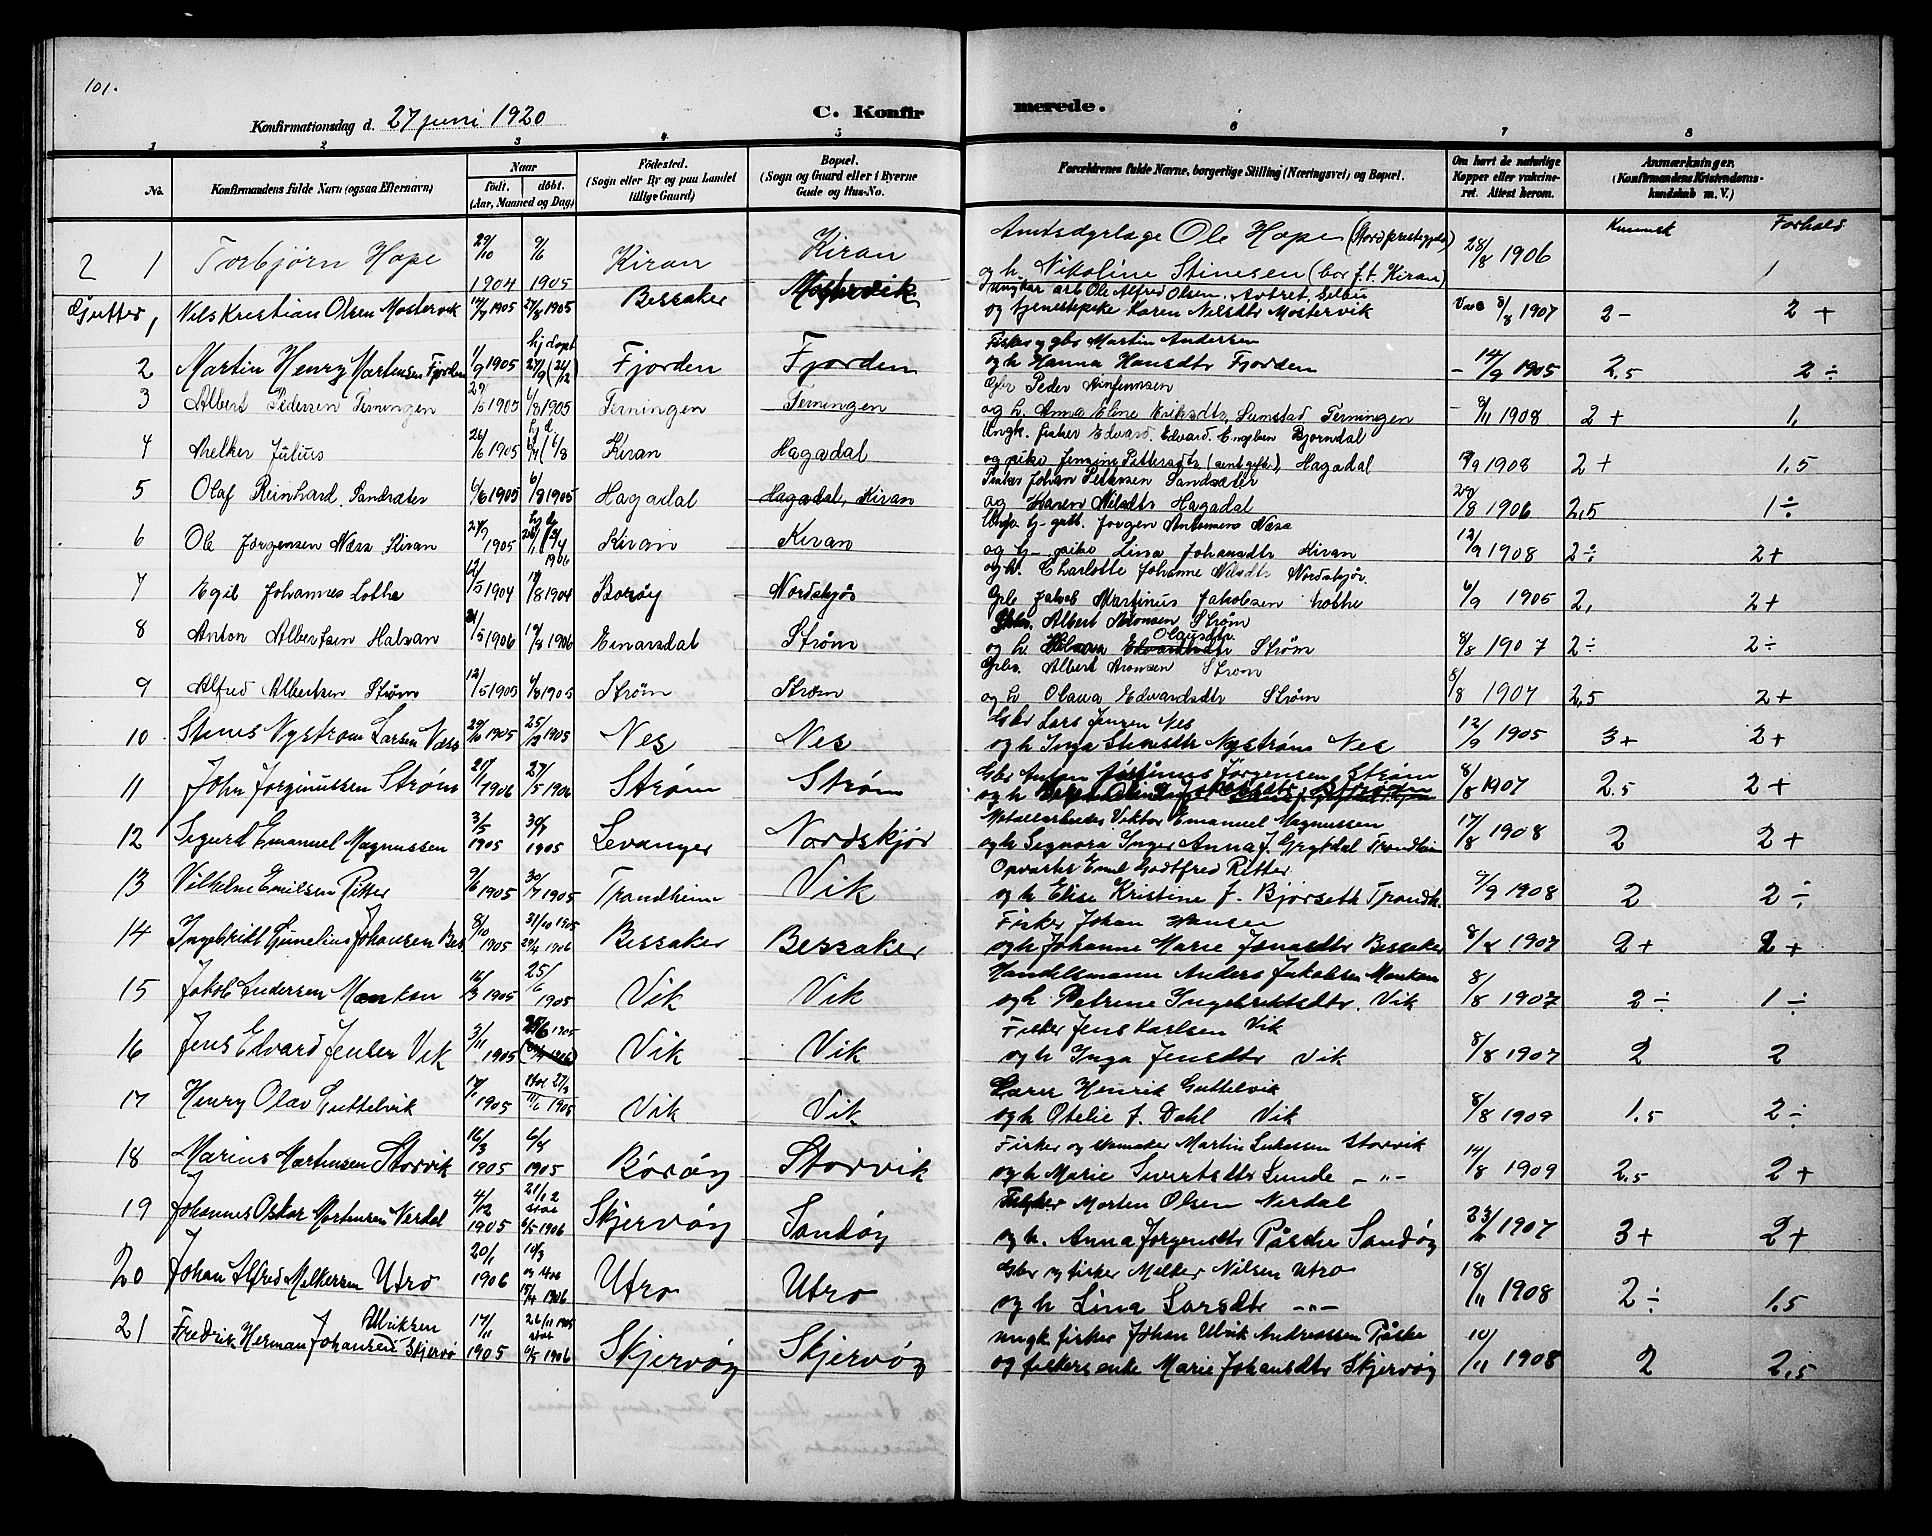 101.
Konfirmationsdag d. 27 juni 1920
C. Konfirmerede.
1 2 3 4 5 6 7 8
No.
Konfirmandens fulde Navn (ogsaa Efternavn)
Naar
født. døbt.
(Aar, Maaned og Dag)
Fødested.
(Sogn eller By og paa Landet
tillige Gaard)
Bopæl.
(Sogn og Gaard eller i Byerne
Gade og Hus-No.
Forældrenes fulde Navne, borgerlige Stilling (Næringsvei) og Bopæl.
Om havt de naturlige
Kopper eller vakcine-
ret. Attest herom.
Anmærkninger.
(Konfirmandens Kristendoms-
kundskab m. V.)
Forhold
2 1 Torbjørn Hope 29/10 1904 9/6 1905 Kiran Kiran Ole Hope 28/8 1906 1
og h. Nikoline Stinesen (bor f.t. Kiran)
Gutter 1 Nils Kristian Olsen Mostervik 1905 27/8 1905 Bessaker Mostervik Ungkar arb. Ole Alfred Olsen. Selbu
og tjenestepike Karen Nilsdtr Mostervik 8/8 1907 2- 2+
2 Martin Henry Martinsen Fjorden 1/9 1905 hj. døpt 27/9 (26/12 Fjorden Fjorden Fisker og gbr Martin Andersen
og h Hanna Hansdtr Fjorden - 14/9 1905 2,5 2÷
3 Albert Pedersen Terningen 29/6 1905 6/8 1905 Terningen Terningen Gbr Peder
og h. Anna Eline Eriksdtr, Sumstad Terningen 1908 2+ 1,
4 Melker Julius 26/6 1905 Kiran Hagadal Ungk. fisker Edvard Engelsen Bjørndal
og pike Jensine Pettersdtr Hagadal 1908 2+ 1,5
5 Olaf Reinhard Sandsæter 6/6 1905 6/8 1905 Hagadal Hagadal, Kiran Fisker Johan Petersen Sandsæter
og Karen Nilsdtr Hagadal 29/8 1906 2,5 1÷
6 Ole Jørgensen Næss Kiran 1905 1906 Kiran Kiran Jørgen Antonsens Næss
og pike Lina Johansdtr Kiran 12/9 1908 2÷ 2+
7 Egil Johannes Lothe 12/5 1904 1904 Borøy Nordskjør og h. Charlotte Johanne Nilsdtr Nordskjør.
Gbr Jakob Martinus Jakobsen Lothe 6/9 1905 2, 2+
8 Anton Albertsen Halvan 1906 1906 Einarsdal Strøm Albert Strøm
og h. Olausdtr Strøm 8/8 1907 2÷ 2÷
9 Alfred Albertsen Strøm 12/5 1905 1905 Strøm Strøm Gbr. Albert Aronsen Strøm
og h Olava Edvardsdtr Strøm 8/8 1907 2,5 2+
10 Stines Nystrøm Larsen Næss 29/10 1905 25/12 1905 Nes Nes Gbr Lars Jensen Nes
og h Inga Stinesdtr Nystrøm Nes 12/9 1905 3+ 2+
11 John Jørginussen Strøm 21/1 1906 27/5 1906 Strøm Strøm Gbr Anton Jørginus Jørgensen Strøm
og h 8/8 1907 2.5 2+
12 Sigurd Emanuel Magnussen 3/5 1905 30/7 1905 Levanger Nordskjør Metallarbeider Viktor Emanuel Magnussen
og h Signora Inger Anna J. Grytdal Trondheim 17/8 1908 2 2+
13 Vilhelm Emilsen Ritter 9/6 1905 30/7 1905 Trondheim Vik Opvarter Emil Godtfred Ritter
og h Elise Kristine J. Bjørseth Trondh. 9/9 1908 2 2÷
14 Ingebrigt Gunelius Johansen Bes 8/10 1905 31/10 1905 29/4 1906 Bessaker Bessaker Fisker Johan Hansen
og h Johanne Marie Jonasdtr Bessaker 8/8 1907 2+ 2+
15 Jakob Andersen Monkan 16/3 1905 25/6 1905 Vik Vik Handelsmann Anders Jakobsen Monkan
og h Petrine Ingebriktsdtr. Vik 8/8 1907 2÷ 1÷
16 Jens Edvard Jensen Vik 3/11 1905 Vik Vik Fisker Jens Karlsen Vik
og h Inga Jensdtr Vik 8/8 1907 2 2
17 Henry Olav Guttelvik 1905 1905 Vik Vik Lærer Henrik Guttelvik
og h Otelie J. Dahl Vik 8/8 1909 1.5 2÷
18 Marius Martinsen Storvik 16/3 1905 1905 Børøy Storvik Fisker og Martin Lukassen Storvik
og h Marie Sivertsdtr Lunde -"- 14/8 1909 2,5 2+
19 Johannes Oskar Mortensen Nerdal 4/12 1905 21/12 6/5 1906 Skjervøy Sandøy Fisker Morten Olsen Nerdal
og h. Anna Jørgensdtr Påske Sandøy 1907 3+ 2+
20 Johan Alfred Melkersen Utro 20/1 1906 10/3 15/4 1906 Utro Utro Gbr og fisker Melker Nilsen Utro
og h Lina Larsdtr -"- 18/11 1908 2÷ 1,5
21 Fredrik Herman Johansen Ulriksen Skjervø 17/11 1905 26/11 1905 6/5 1906 Skjervøy Skjervøy ungk. fisker Johan Ulrik Andreassen Påske
og fiskers enke Marie Johansdtr Skjervøy 10/11 1908 2 2,5